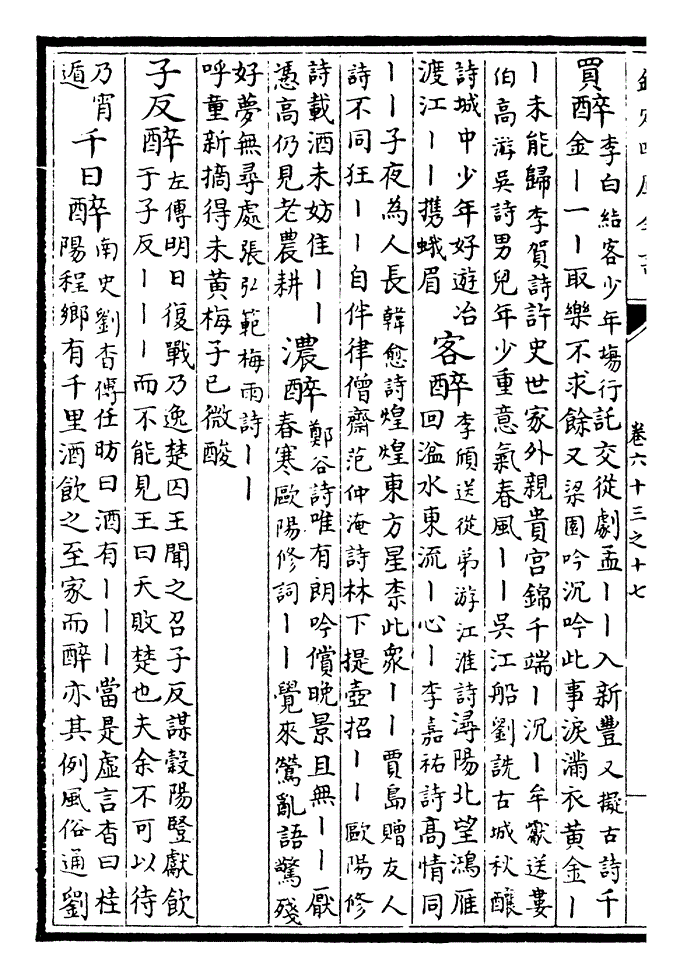 卷六十三之十七
買醉
李白結客少年塲行託交從劇孟丨丨入新豐又擬古詩千
金丨一丨取樂不求餘又梁園吟沉吟此事淚滿衣黄金丨
丨未能歸李賀詩許史世家外親貴宫錦千端丨沉丨牟巘送婁
伯高游吳詩男兒年少重意氣春風丨丨吳江船劉詵古城秋釀
詩城中少年好遊冶
渡江丨丨攜蛾眉
客醉
李頎送從弟游江淮詩潯陽北望鴻雁
回湓水東流丨心丨李嘉祐詩高情同
丨丨子夜為人長韓愈詩煌煌東方星柰此衆丨丨賈島贈友人
詩不同狂丨丨自伴律僧齋范仲淹詩林下提壺招丨丨歐陽修
詩載酒未妨住丨丨
憑高仍見老農耕
濃醉
鄭谷詩唯有朗吟償晚景且無丨丨厭
春寒歐陽修詞丨丨覺來鶯亂語驚殘
好夢無尋處張弘範梅雨詩丨丨
呼童新摘得未黄梅子已微酸
子反醉
左傳明日復戰乃逸楚囚王聞之召子反謀穀陽豎獻飲
于子反丨丨丨而不能見王曰天敗楚也夫余不可以待
乃宵
遁
千日醉
南史劉杳傳任昉曰酒有丨丨丨當是虚言杳曰桂
陽程鄉有千里酒飲之至家而醉亦其例風俗通劉